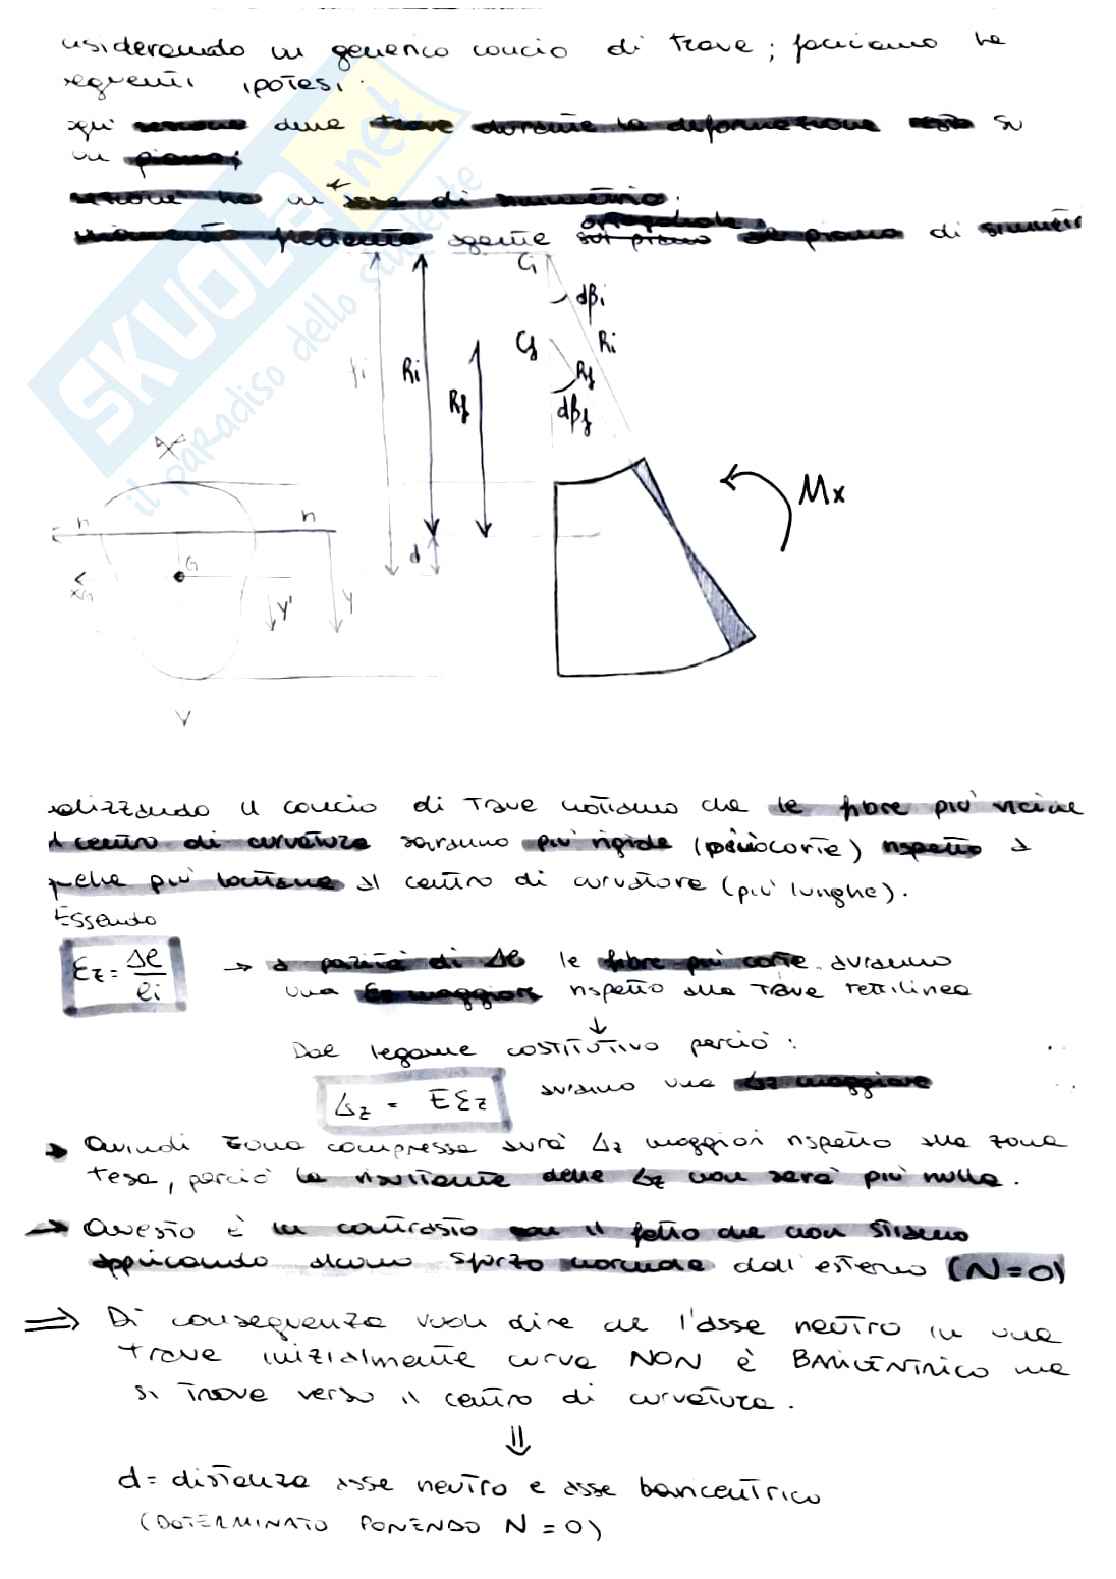 nsiderando un generico concio di trave; facciamo le
seguenti ipotesi.
ogni sezione della trave durante la deformazione resta su
un piano;
sezione ha un asse di simmetria.
ortogonale
momento flettente agente sul piano al piano di simmetr
Ci
dβi
Cf
Ri
Rf
dβf
ri
Ri
Rf
Mx
n
n
d
G
xG
y'
y
Y
alizzando il concio di trave notiamo che le fibre più vicine
l centro di curvatura saranno più rigide (più corte) rispetto a
quelle più lontane al centro di curvatura (più lunghe).
Essendo
εz = Δl / li → a parità di Δl le fibre più corte avranno
una εz maggiore rispetto alla trave rettilinea
↓
Dal legame costitutivo perciò:
σz = E εz avremo una σz maggiore
→ Quindi zona compressa avrà σz maggiori rispetto alla zona
tesa, perciò la risultante delle σz non sarà più nulla.
→ Questo è in contrasto con il fatto che non stiamo
applicando alcuno sforzo normale dall'esterno (N=0)
⇒ Di conseguenza vuol dire che l'asse neutro in una
trave inizialmente curva NON è BARICENTRICO ma
si trova verso il centro di curvatura.
⇓
d = distanza asse neutro e asse baricentrico
(DETERMINATO PONENDO N = 0)
SKUOLA.net
il paradiso dello studente